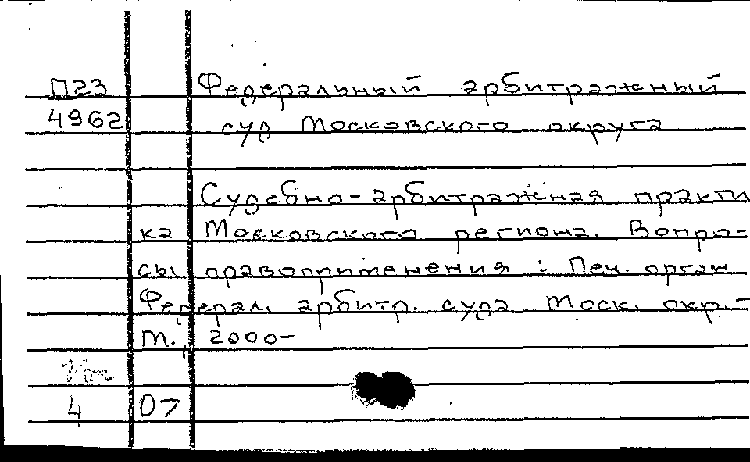 П23 Федеральный арбитражный
4962 суд Московского округа
Судебно-арбитражная практи
ка Московского региона. Вопро-
сы правоприменения : Печ. орган
Федерал. арбитр. суда Моск. окр.-
М., 2000-
4 07